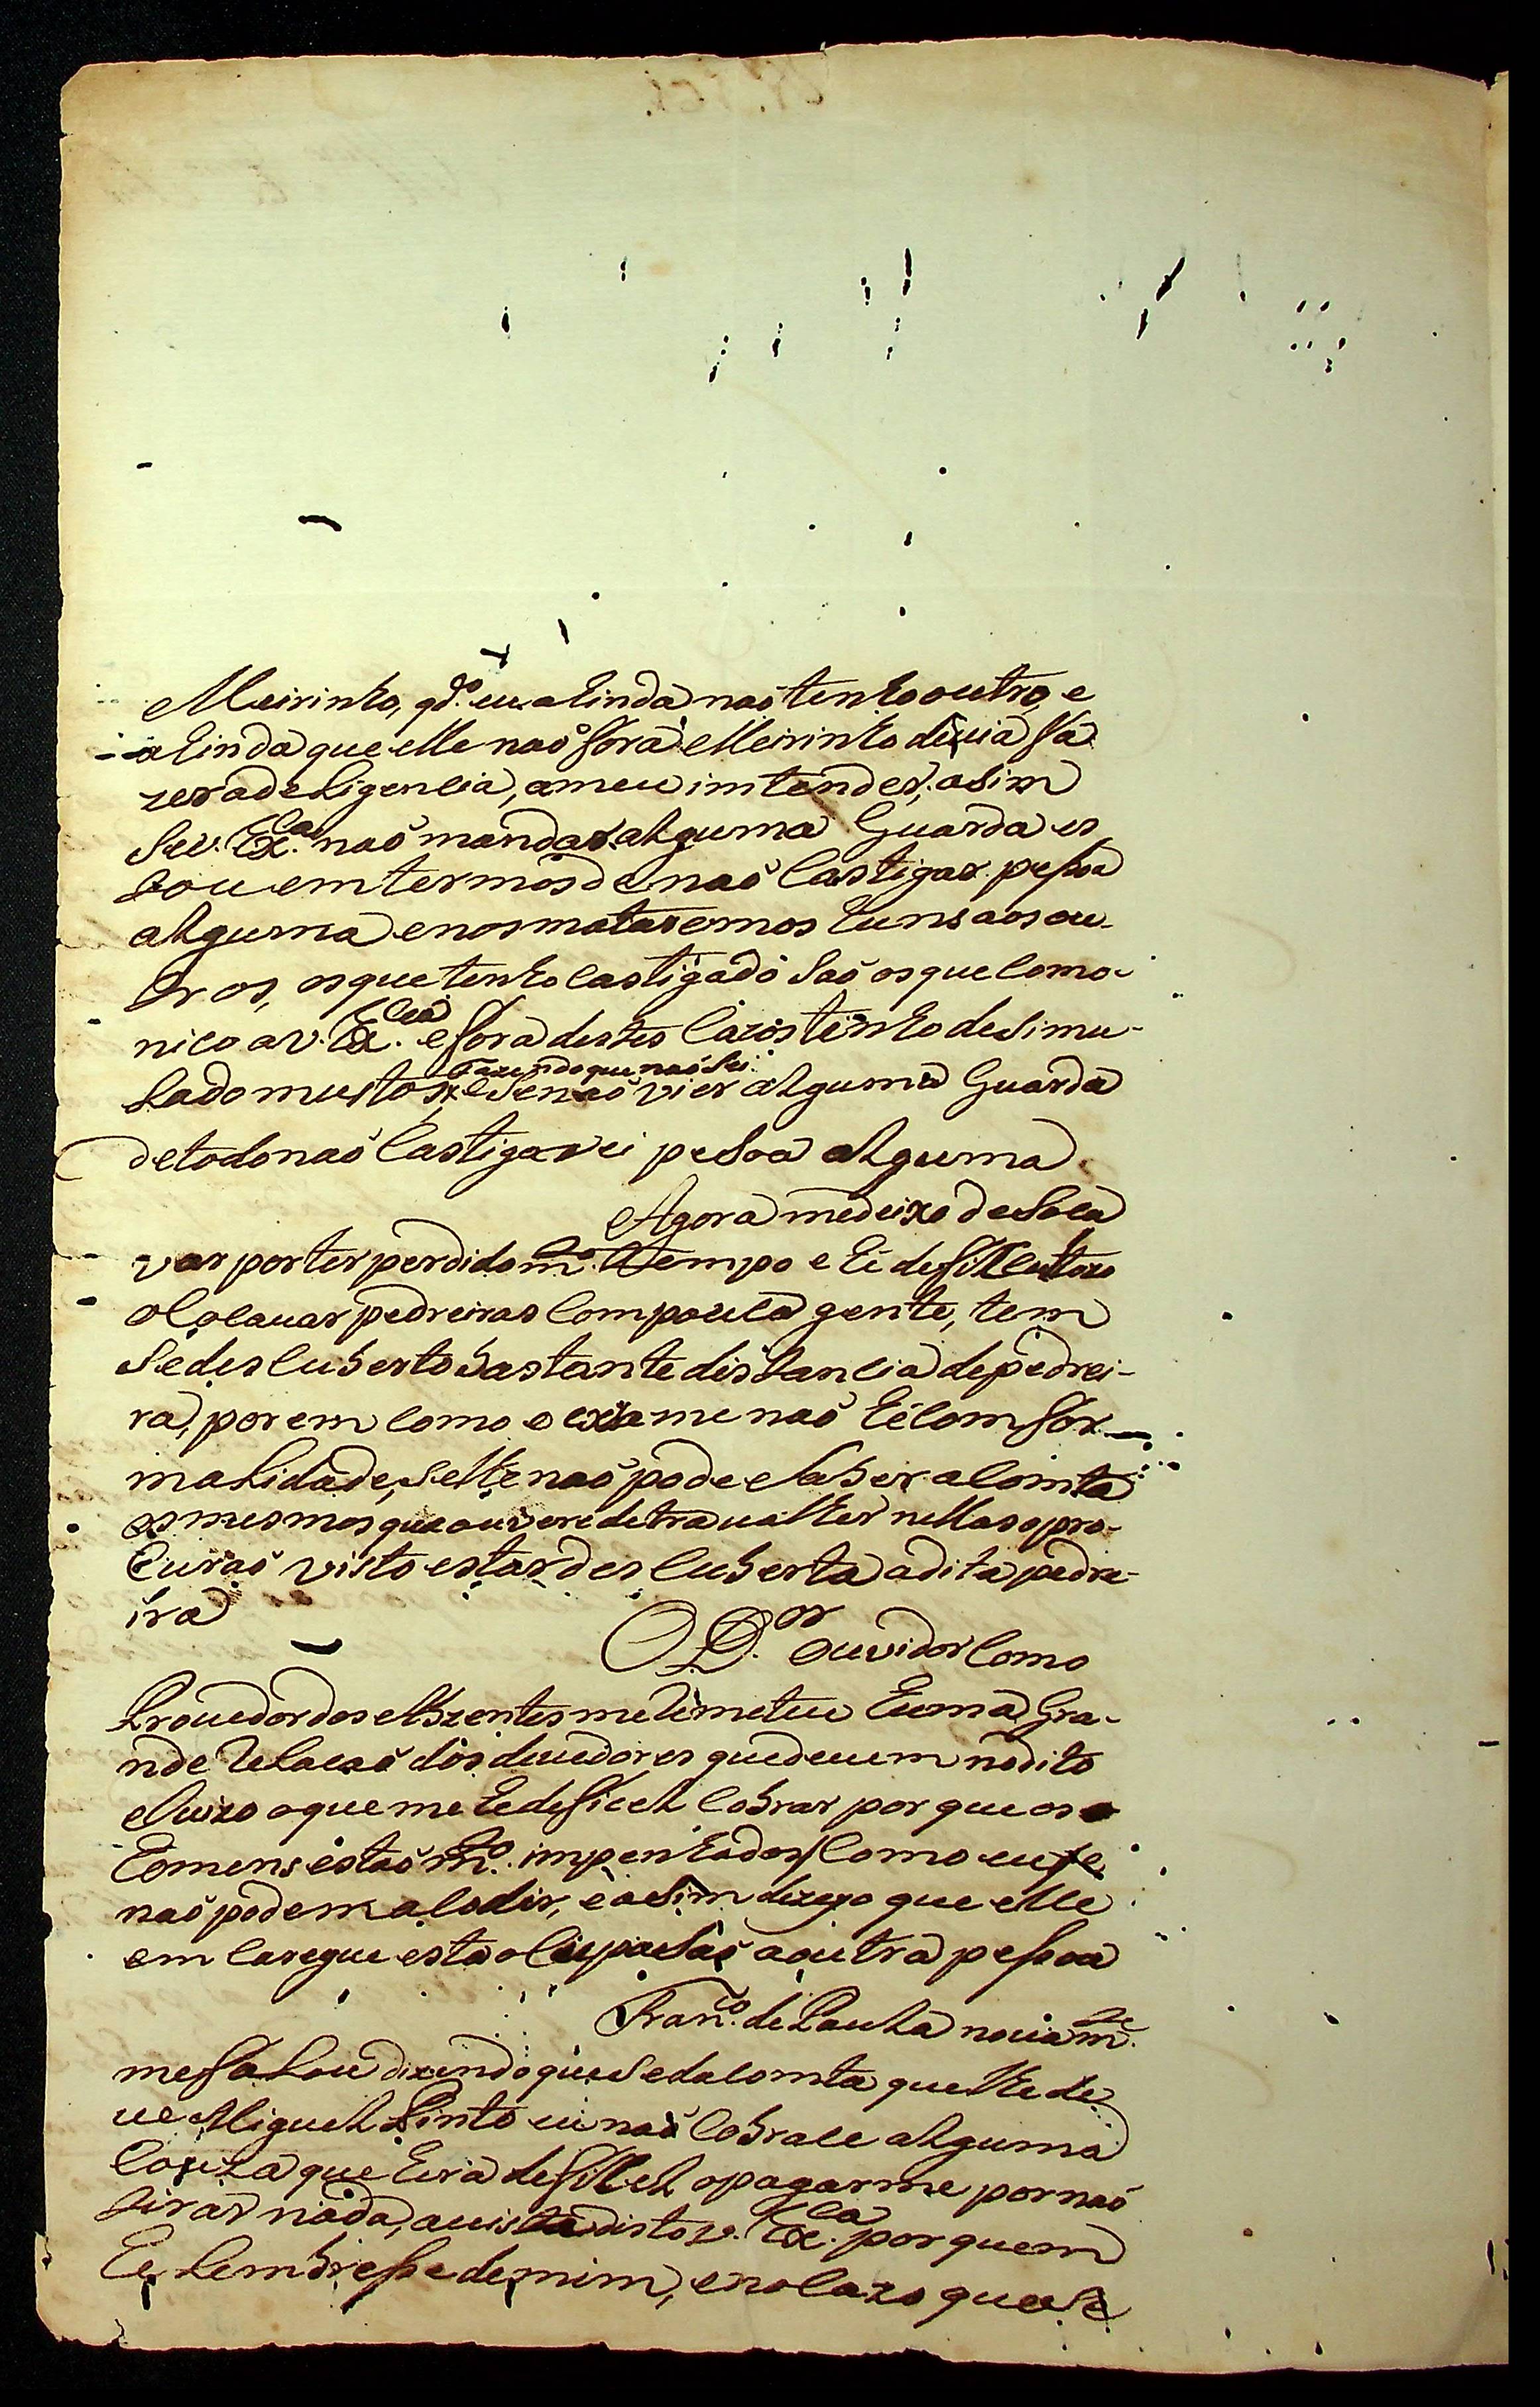 Meirinho, qd.º eu ahinda naõ tenho outro, e
ahinda que elle naõ fora Meirinho divia fa
zer a deligencia, a meu imtender, asim
Se V. Ex.cia naõ mandar alguma Guarda es
tou em termos de naõ Castigar pessoa
alguma e nos mataremos huns aos ou-
tros, os que tenho castigado Saõ os que como-
nico a V. Ex.cia e fora destes Cazos tenho desimu-
lado muitos, fazendo que naõ Sei e Se naõ vier alguma Guarda
de todo naõ Castigarei pesoa alguma
Agora me deixo de Soca
var por ter perdido m.to tempo e hé defficultozo
o Socauar pedreiras Com pouca gente, tem
Se descuberto bastante distancia de pedrei-
ra, porem como o exzame naõ hé com for
malidade, Selhe naõ pode Saber a Comta
os mesmos que ouverem de traualhar nellas o pro-
curaõ visto estar descuberta a dita pedre-
ira
O D.or Ouvidor Como
Prouedor dos Abzentes me Remeteu huma Gra-
nde Relacaõ dos deuedores que deuem no dito
Juizo o que me he deficel Cobrar por que os
homens estaõ m.to impenhados Como eu, e
naõ podem acodir, e asim dezejo que elle
em caregue esta o Cupasaõ a outra pessoa
Fran.co de Paulla nouam.te
me falou dizendo que Se da Comta que lhe de
ue Miguel Pinto eu naõ Cobrace alguma
Couza que hera deficel o pagarme por naõ
tirar nada, auista disto V. Ex.cia por quem
he Lembresse de mim, e no Cazo que Se